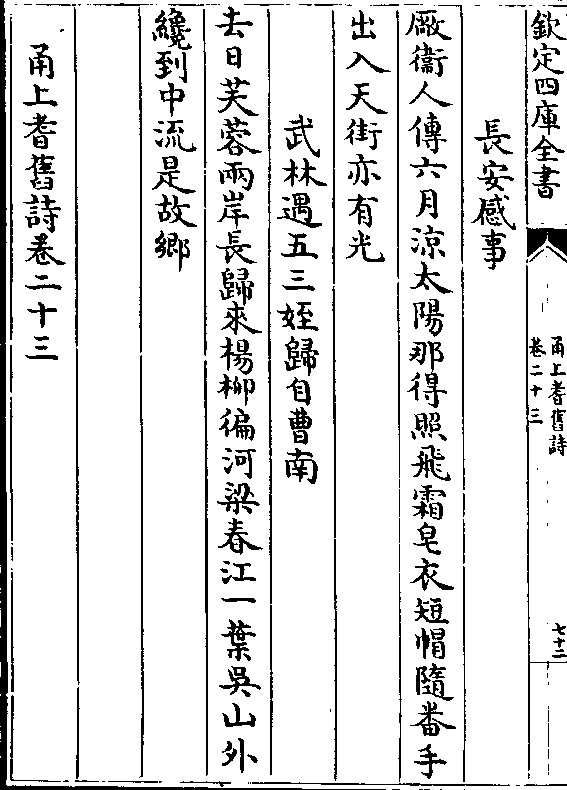 欽定四庫全書
甬上耆舊詩
卷二十三
七十二
長安感事
厰衞人傳六月涼太陽那得照飛霜皂衣短帽隨番手
出入天街亦有光
武林遇五三姪歸自曹南
去日芙蓉兩岸長歸來楊柳徧河梁春江一葉吳山外
纔到中流是故鄉
甬上耆舊詩卷二十三